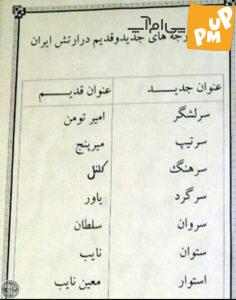 پی‌ام‌آپ
UP
PM
درجه های جدیدوقدیم درارتش ایران
عنوان جدید عنوان قدیم
سرلشگر امیر تومن
سرتیپ میرپنج
سرهنگ کلنل
سرگرد یاور
سروان سلطان
ستوان نایب
استوار معین نایب